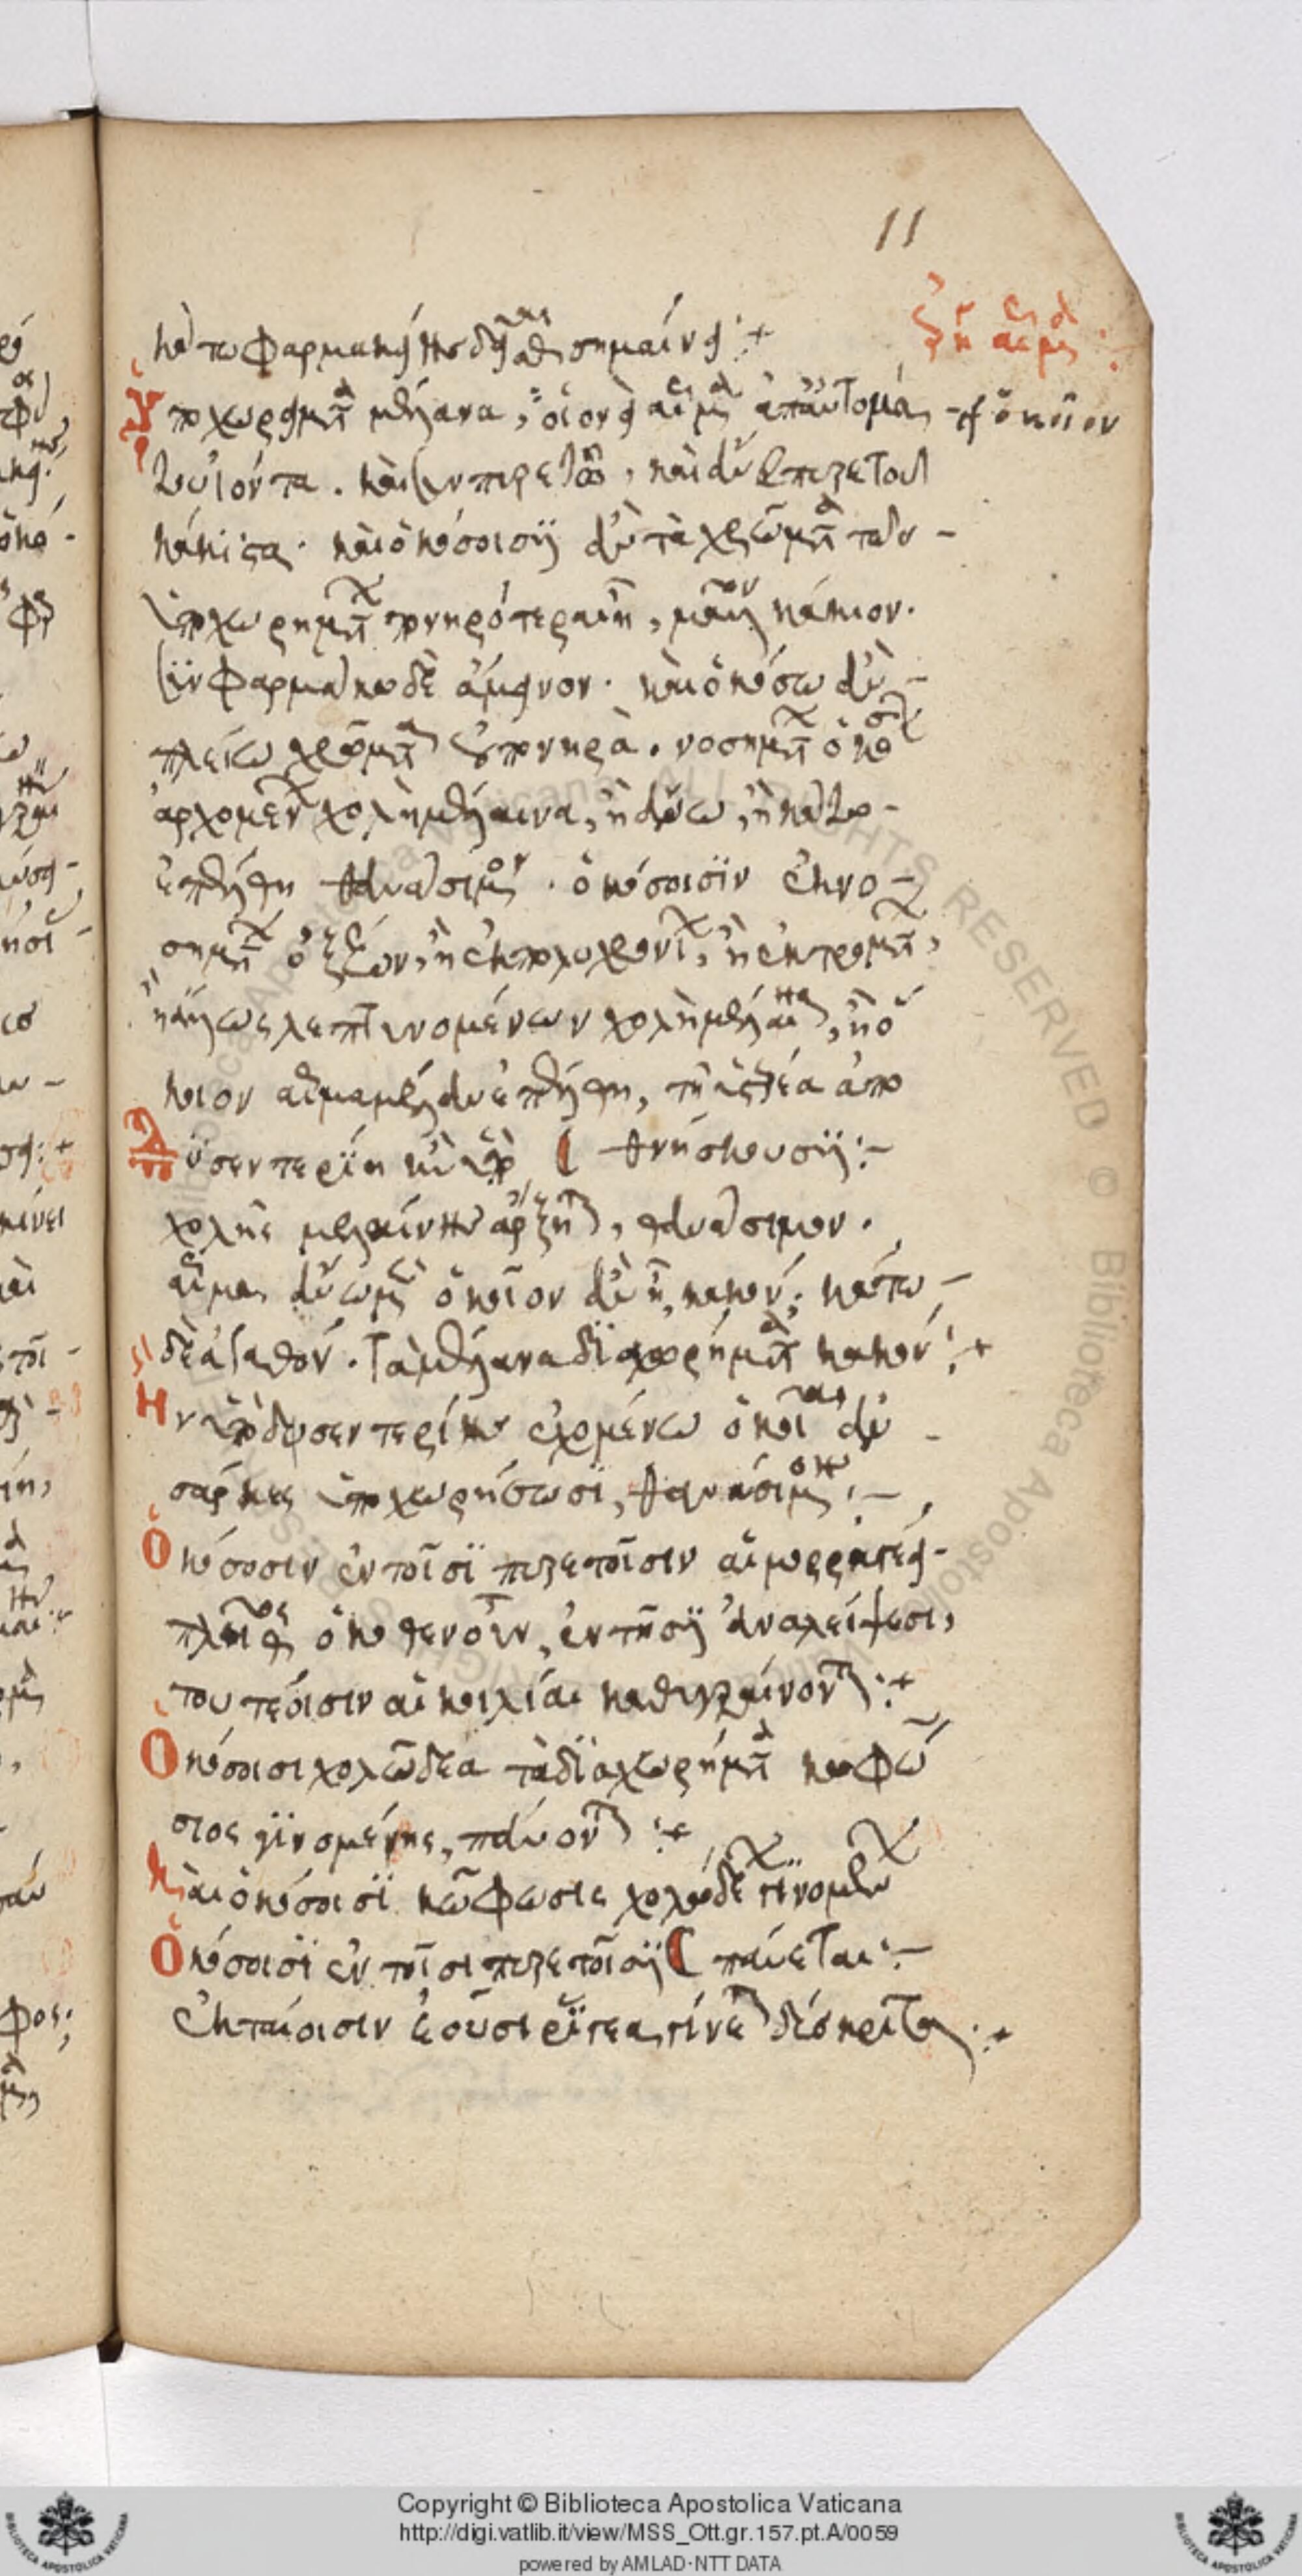 11
κάτω φαρμακίης δεῖσθαι σημαίνει:+
Ὑποχωρήματα μέλανα, οἷον αἷμα ἀπαυτομάτ
ὁκοῖον
ἰόντα. καὶ ξὺν πυρετῷ, καὶ ἄνευ πυρετοῦ
κάκιστα. καὶ ὁκόσοισιν ἂν τὰ χρώματα τῶν
ὑποχωρημάτων πονηρότερα ἦ, μᾶλλον κάκιον.
ξὺν φαρμάκω δὲ ἄμεινον. καὶ ὁκόσω ἂν
πλείω χρώματα οὐ πονηρά. νοσημάτων ὁκόσων
ἀρχομένων χολὴ μέλαινα, ἢ ἄνω, ἢ κάτω
ἐπέλθη θανάσιμον. ὁκόσοισιν ἐκ νο-
σημάτων ὀξέων, ἢ ἐκ πολυχρονίων, ἢ ἐκ τρωμάτων,
ἢ ἄλλως λεπτυνομένων χολὴ μέλαινα, ἢ ὁ
κοῖον αἷμα μέλαν ἐπέλθη, τῆ ὑστεραία ἀπο
θνήσκουσιν:-
Δυσεντερίη ἢν ἀπὸ
χολῆς μελαίνης ἄρξηται, θανάσιμον.
αἷμα ἄνω μὲν ὁκοῖον ἂν ἦ, κακόν. κάτω
δὲ ἀγαθόν. τὰ μέλανα διαχωρήματα κακόν:+
Ἢν ὑπὸ δυσεντερίης ἐχομένω ὁκοῖαι ἂν
σάρκες ὑποχωρήσωσι, θανάσιμον:-
Ὁκόσοσιν ἐν τοῖσι πυρετοῖσιν αἱμορραγέει
πλῆθος ὁκόθεν οὖν, ἐν τῆσιν ἀναλείψεσι,
τουτέοισιν αἱ κοιλίαι καθυγραίνονται:+
Ὁκόσοισι χολώδεα τὰ διαχωρήματα κωφώ
σιος γινομένης, παύονται:+
Καὶ ὁκόσοισι κώφωσις χολωδέων γινομένων
παύεται:-
Ὁκόσοισι ἐν τοῖσι πυρετοῖσιν
ἑκταίοισιν ἐοῦσι ῥίγεα γίνεται δύσκριτα:+
Copyright © Biblioteca Apostolica Vaticana
http://digi.vatlib.it/view/MSS_Ott.gr.157.pt.A/0059
powered by AMLAD·NTT DATA